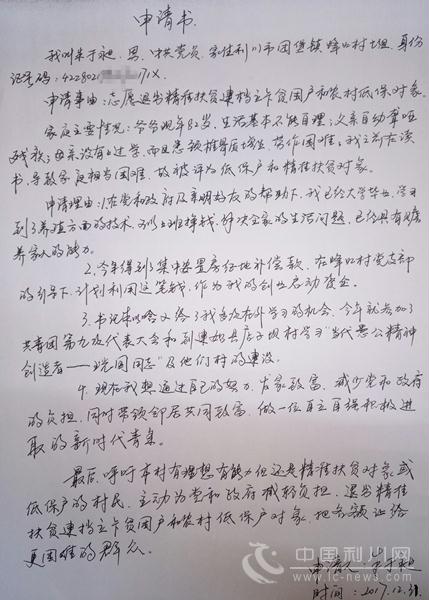 申请书
我叫朱于昶，男，中共党员，家住利川市团堡镇蜂口村七组，身份
证号码：4228021 71X。
申请事由：志愿退出精准扶贫建档立卡贫困户和农村低保对象。
家庭主要情况：爷爷现年82岁，生活基本不能自理；父亲自幼聋哑
残疾；母亲没有上过学，而且患颈椎骨质增生，劳作困难；我之前在读
书，导致家庭相当困难，故被评为低保户和精准扶贫对象。
申请理由：1.在党和政府及亲朋好友的帮助下，我已经大学毕业，学习
到了养殖方面的技术，可以上班挣钱，解决全家的生活问题，已经具有赡
养家人的能力。
2.今年得到了集中安置房征地补偿款，在蜂口村党支部
的引导下，计划利用这笔钱，作为我的创业启动资金。
3.书记 给了我多次在外学习的机会，今年就参加了
共青团第九次代表大会和到建始县店子坪村学习“当代愚公精神
创造者—— 同志”及他们村的建设。
4.现在我想通过自己的努力，发家致富，减少党和政府
的负担，同时带领邻居共同致富，做一位自立自强积极进
取的新时代青年。
最后，呼吁本村有理想有能力但还是精准扶贫对象或
低保户的村民，主动为党和政府减轻负担，退出精准
扶贫建档立卡贫困户和农村低保户对象，把名额让给
更困难的群众。
申请人：朱于昶
时间：2017.12.31
中国利川网
www.lc-news.com